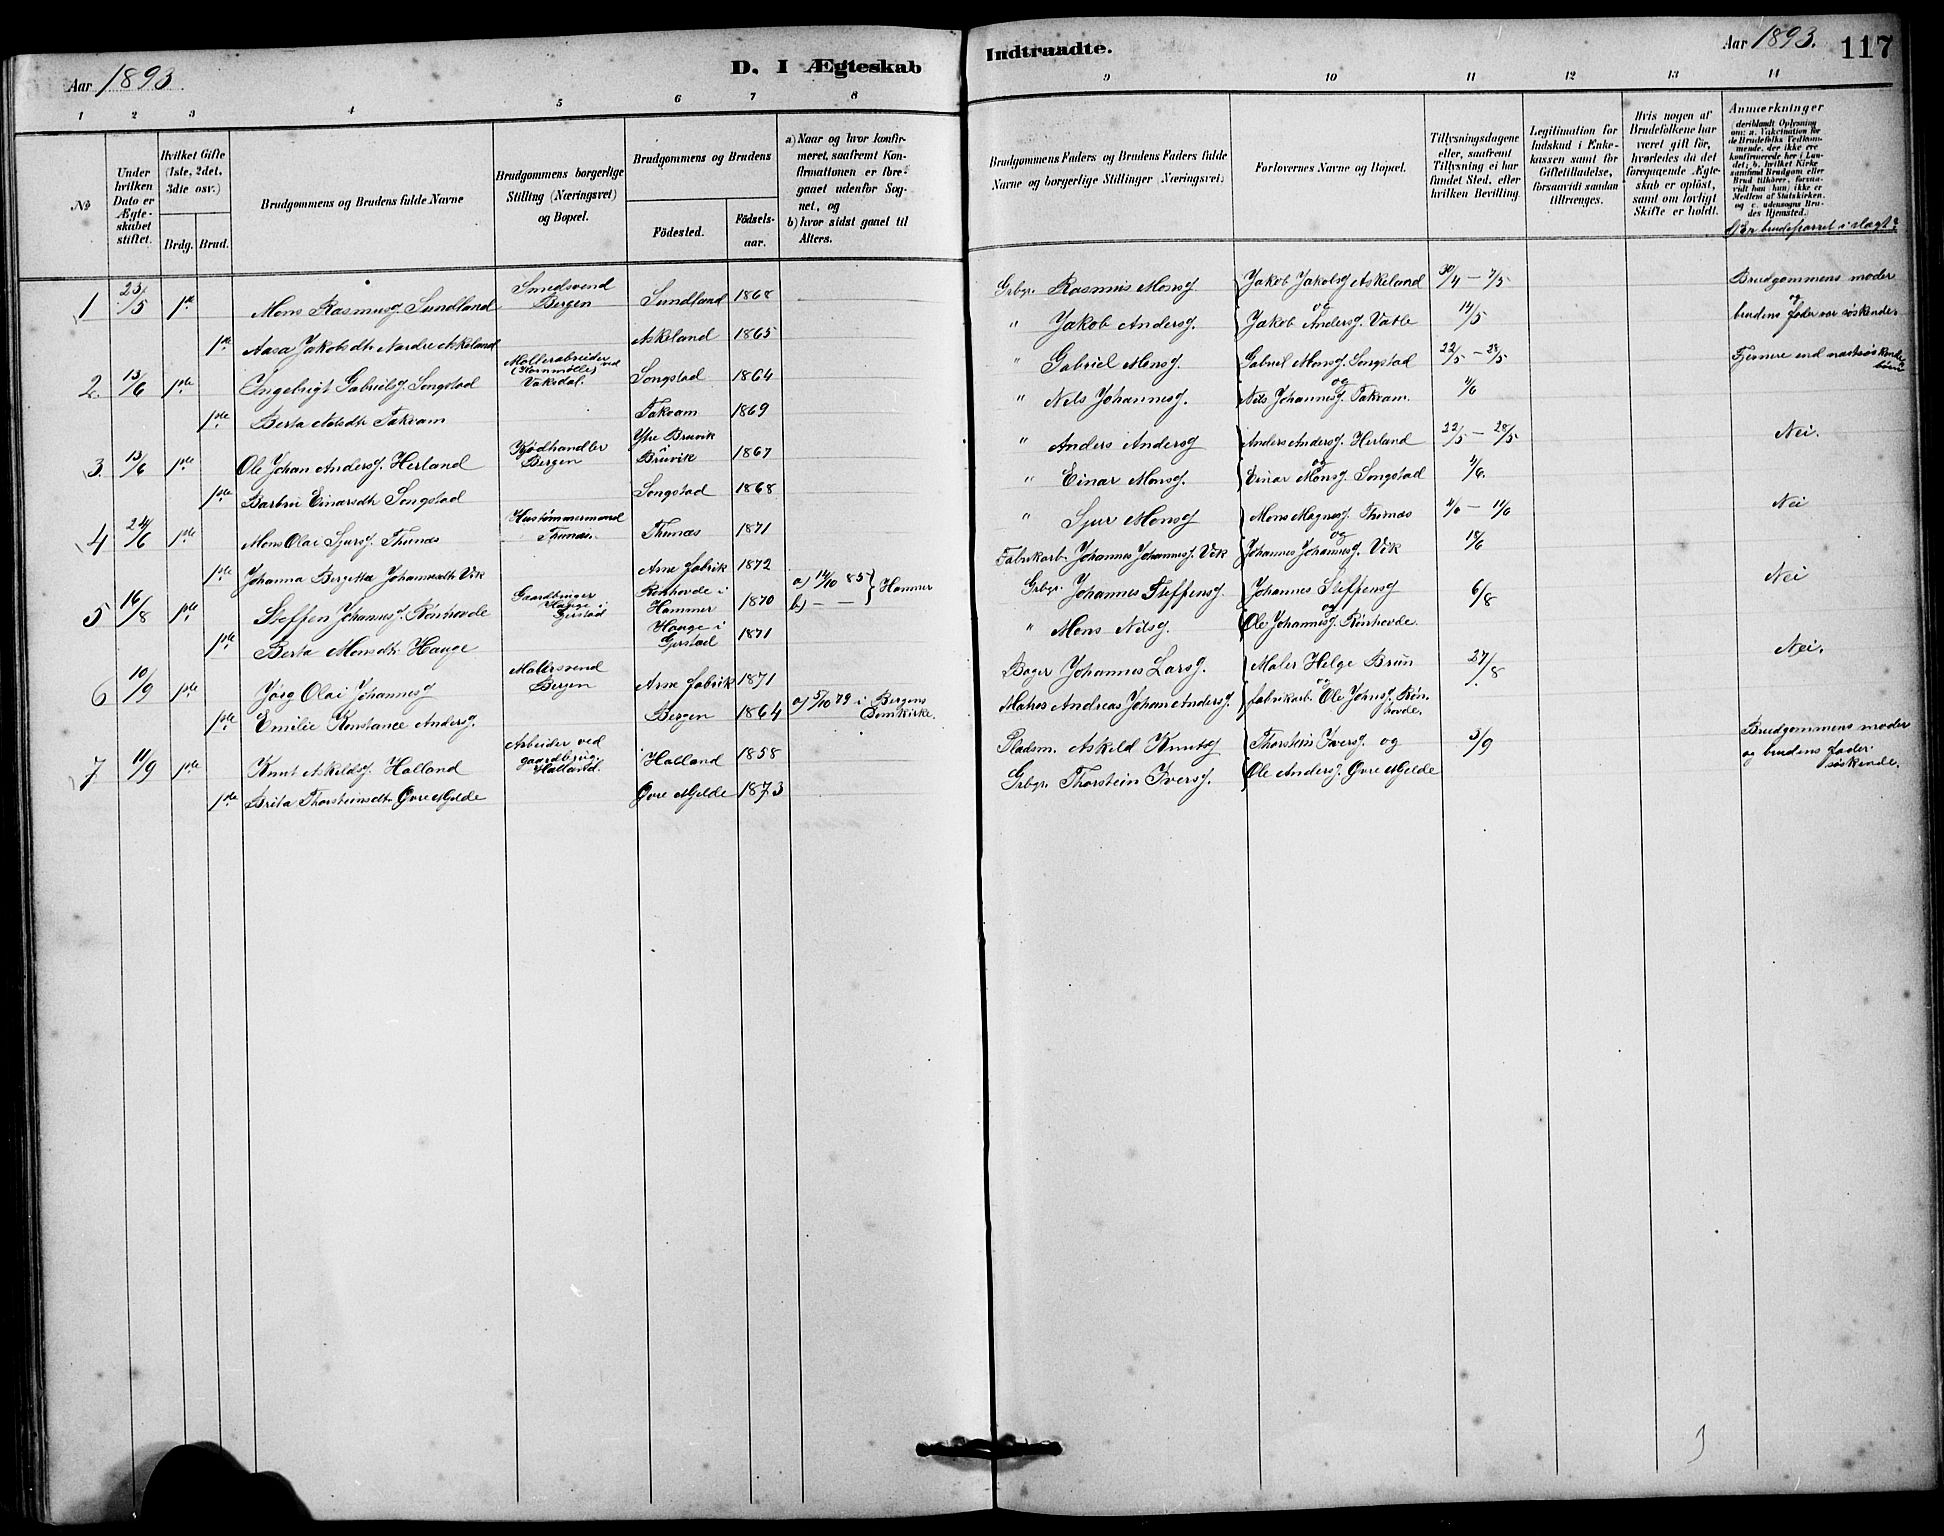 Aar 1893. D. I Ægteskab
Indtraadte. Aar 1893. 117
1 2 3 4 5 6 7 8
9 10 11 12 13 14
No
Under hvilken Dato er Ægteskabet stiftet.
Hvilket Gifte (1ste, 2det, 3die osv.)
Brdg. Brud.
Brudgommens og Brudens fulde Navne
Brudgommens borgerlige Stilling (Næringsvei) og Bopæl.
Brudgommens og Brudens
Födested. Födsels-aar.
a) Naar og hvor konfirmeret, saafremt Konfirmationen er foregaaet udenfor Sognet, og
b) hvor sidst gaaet til Alters.
Brudgommens Faders og Brudens Faders fulde Navne og borgerlige Stillinger (Næringsvei)
Forlovernes Navne og Bopæl.
Tillysningsdagene eller, saafremt Tillysning ei har fundet Sted, efter hvilken Bevilling.
Legitimation for Indskud i Enkekassen samt for Giftetilladelse, forsaavidt saadan tiltrænges.
Hvis nogen af Brudefolkene har været gift før, hvorledes da det foregaaende Ægteskab er oplöst, samt om lovligt Skifte er holdt.
Anmærkninger
deriblandt Oplysning om: a. Vakcination for de Brudefolks Vedkommende, der ikke ere konfirmerede her i Landet; b. hvilket Kirkesamfund Brudgom eller Brud tilhörer, forsaavidt han (hun) ikke er Medlem af Statskirken, og c. udensogns Brudes Hjemsted.)
d) Er brudeparret i slægt?
1 23/5 1ste Mons Rasmusg. Sundland Smedsvend Bergen Sundland 1868 Grbgr. Rasmus Monsg Jakob Jakobsg Askeland 30/4 – 7/5 Brudgommens moder
og
1ste Aasa Jakobsdtr Nordre Askeland Askeland 1865 " Jakob Andersg. Jakob Andersg. Vatle 14/5 brudens fader var søskende.
2. 13/6 1ste Ingebrigt Gabrielsg. Songstad Møllerarbeider ved (Kornmølle) Vaksdal. Songstad 1864 " Gabriel Monsg. Gabriel Monsg. Songstad 22/5 – 28/5 Fjernere end næstsøskendebørn
og
1ste Berta Nilsdtr Takvam Takvam 1869 " Nils Johannesg. Nils Johannesg. Takvam. 4/6
3. 13/6 1ste Ole Johan Andersg. Herland Kjødhandler Bergen Ytre Bruvik Bruvik 1867 " Anders Andersg Anders Andersg. Herland 22/5 – 28/5 Nei.
og
1ste Barbru Einarsdtr Songstad Songstad 1868 " Einar Monsg. Einar Monsg. Songstad 4/6.
4 24/6 1ste Mons Olai Sjursg. Thunæs Hustømmermand Thunæs. Thunæs 1871 " Sjur Monsg Mons Magnesg. Thunæs 4/6 – 11/6 Nei
og
1ste Johanna Bergetta Johannesdtr Vik Arne fabrik 1872 Fabrikarb. Johannes Johannesg. Vik Johannes Johannesg. Vik 18/6
5 16/8 1ste Steffen Johannesg. Rønhovde Gaardbruger Hauge i Gjerstad Rønhovde i Hammer 1870 a) 14/10 85 b) — — } Hammer Grbgr. Johannes Steffensg Johannes Steffensg 6/8 Nei
og
1ste Berta Monsdtr. Hauge Hauge i Gjerstad 1871 " Mons Nilsg. Ole Johannesg. Rønhovde.
6 10/9 1ste Jørg Olai Johannesg Malersvend Bergen Arne fabrik 1871 Bager Johannes Larsg. Maler Helge Brun 27/8 Nei.
og
1ste Emilie Konstance Andersg. Bergen 1864 a) 5/10 79 i Bergens Domkirke. Matros Andreas Johan Andersg. fabrikarb. Ole Johnsg. Rønhovde.
7 11/9 1ste Knut Askildsg. Halland Arbeider ved gaardbrug. Halland. Halland 1858 Pladsm. Askild Knutsg Thorstein Iversg. og 3/9 Brudgommens moder
og brudens fader søskende.
1ste Brita Thorsteinsdtr. Øvre Mjelde Øvre Mjelde 1873 Grbgr. Thorstein Iversg. Ole Andersg. Øvre Mjelde